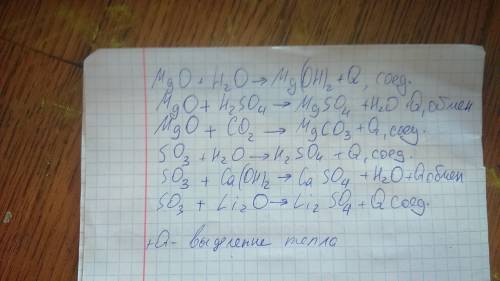 MgO + H₂O → Mg(OH)₂ + Q, соед.
MgO + H₂SO₄ → MgSO₄ + H₂O + Q, обмен
MgO + CO₂ → MgCO₃ + Q, соед.
SO₃ + H₂O → H₂SO₄ + Q, соед.
SO₃ + Ca(OH)₂ → CaSO₄ + H₂O + Q обмен
SO₃ + Li₂O → Li₂SO₄ + Q соед.
+Q - выделение тепла